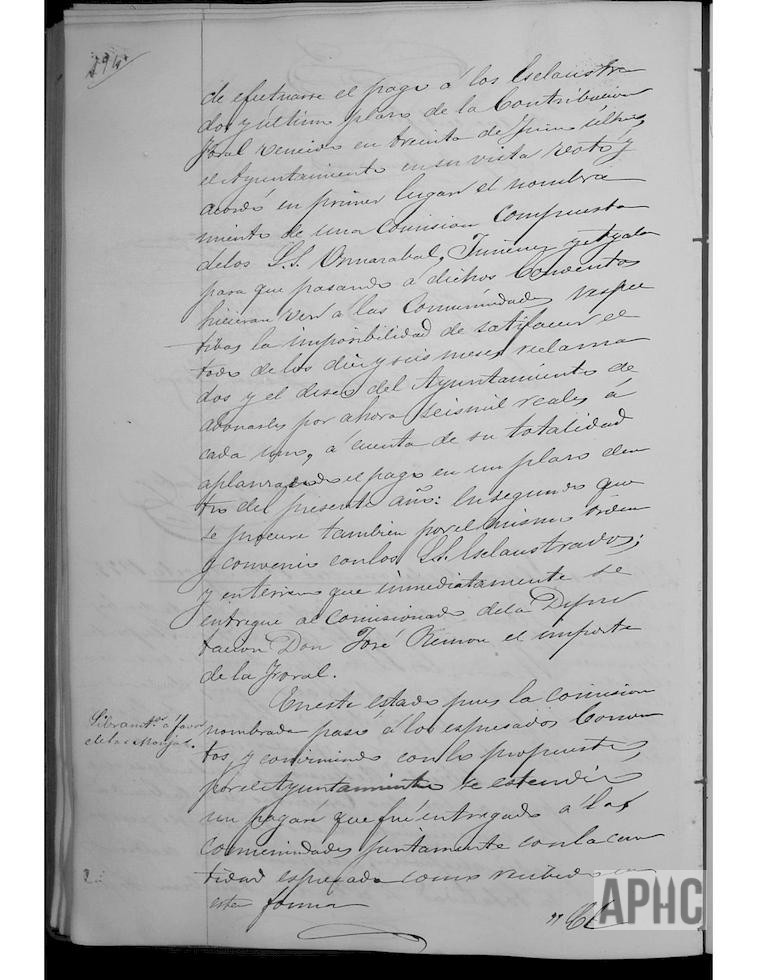 194
de efectuarse el pago á los Esclaustra
dos y ultimo plazo de la Contribucion
foral vencido en treinta de Junio último,
el Ayuntamiento en su vista trató y
acordó en primer lugar el nombra
miento de una Comision compuesta
de los S.S. Ormazabal, Jimenez y Ayala
para que pasando á dichos Conventos
hicieran ver á las Comunidades respec
tibas la imposibilidad de satisfacer el
todo de los diez y seis meses reclama
dos y el deseo del Ayuntamiento de
abonarles por ahora seis mil reales á
cada uno, á cuenta de su totalidad
aplanzando el pago en un plazo den
tro del presente año: En segundo que
se procure tambien por el mismo órden
y convenio con los S.S. Esclaustrados;
y en tercero que inmediatamente se
entregue al comisionado de la Dipu
tacion Don José Remon el importe
de la foral.
Libramtos. a favor
de las Monjas.
En este estado pues la comision
nombrada pasó á los espresados Conven
tos, y conviniendo con lo propuesto
por el Ayuntamiento se estendió
un pagaré que fué entregado á las
Comunidades juntamente con la can
tidad espresada como recibido en
esta forma
" El
APHC